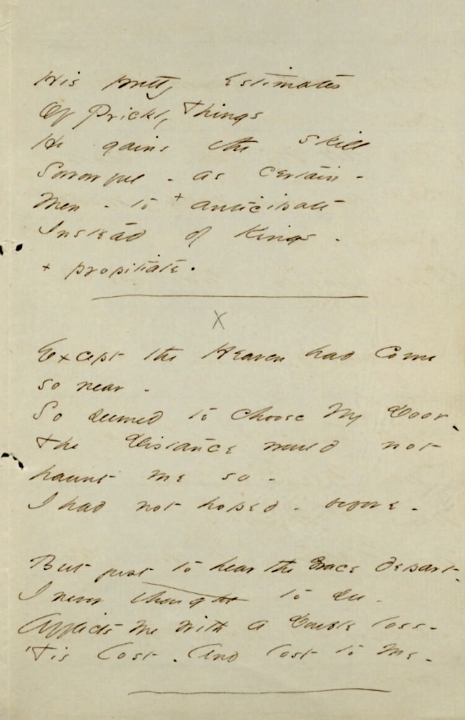 His pretty estimates
Of Prickly Things
He gains the skill
Sorrowful - as certain -
Men - to + anticipate
Instead of Kings -
+ propitiate.
X
Except the Heaven had come
so near -
So seemed to choose My Door -
The Distance would not
haunt me so -
I had not hoped - before -
But just to hear the Grace depart -
I never thought to see -
Afflicts me with a Double loss -
'Tis lost - And lost to me -